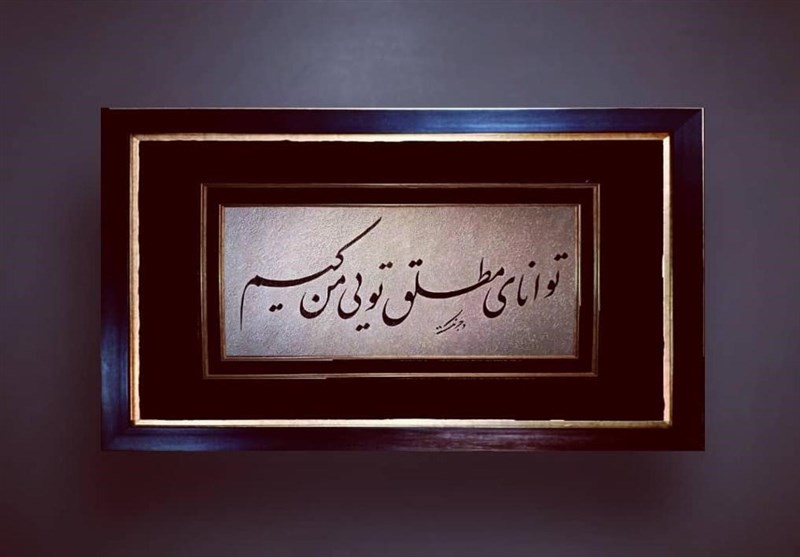 توانای مطلق تویی من کیم